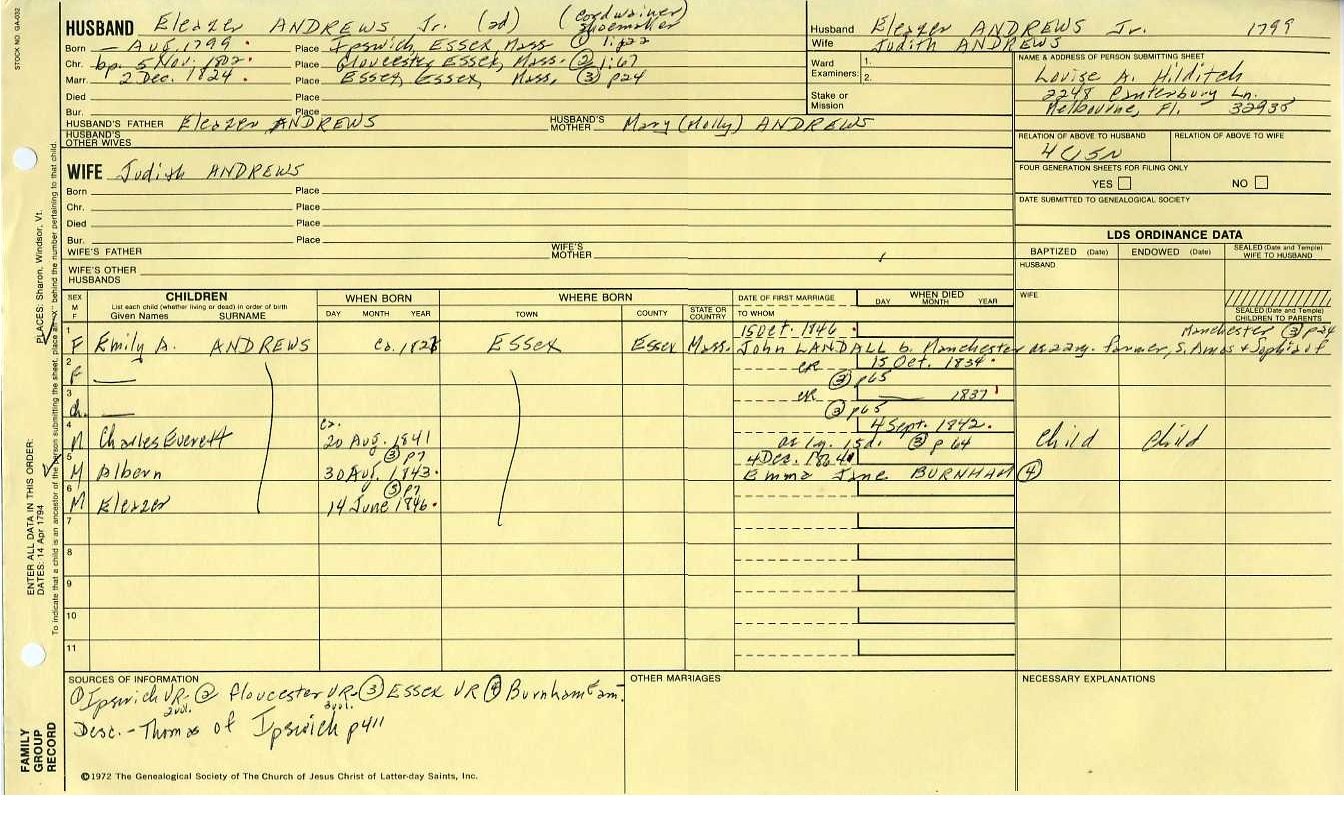 STOCK NO. GA-032
HUSBAND Eleazer ANDREWS Jr. (ad) (cordwainer
shoemaker
Born — Aug. 1799 Place Ipswich, Essex, Mass ① 1:p22
Chr. bp. 5 Nov. 1802 Place Gloucester Essex, Mass. ② 1:67
Marr. 2 Dec. 1824 Place Essex, Essex, Mass. ③ p24
Died Place
Bur. Place
HUSBAND'S FATHER Eleazer ANDREWS HUSBAND'S MOTHER Mary (Molly) ANDREWS
HUSBAND'S OTHER WIVES
Husband Eleazer ANDREWS Jr. 1799
Wife Judith ANDREWS
Ward Examiners: 1.
2.
Stake or Mission
NAME & ADDRESS OF PERSON SUBMITTING SHEET
Louise A. Hilditch
2248 Canterbury Ln.
Melbourne, Fl. 32935
RELATION OF ABOVE TO HUSBAND RELATION OF ABOVE TO WIFE
FOUR GENERATION SHEETS FOR FILING ONLY
YES NO
DATE SUBMITTED TO GENEALOGICAL SOCIETY
WIFE Judith ANDREWS
Born Place
Chr. Place
Died Place
Bur. Place
WIFE'S FATHER WIFE'S MOTHER
WIFE'S OTHER HUSBANDS
LDS ORDINANCE DATA
BAPTIZED (Date) ENDOWED (Date) SEALED (Date and Temple) WIFE TO HUSBAND
HUSBAND
WIFE
SEALED (Date and Temple) CHILDREN TO PARENTS
SEX M F CHILDREN WHEN BORN WHERE BORN DATE OF FIRST MARRIAGE WHEN DIED
List each child (whether living or dead) in order of birth
Given Names SURNAME DAY MONTH YEAR TOWN COUNTY STATE OR COUNTRY TO WHOM DAY MONTH YEAR
1 15 Oct. 1846 Manchester ③ p24
F Emily A. ANDREWS ca. Essex Essex Mass. John LANDALL b. Manchester farmer, S. Amos + Sophia of
2 CR 15 Oct. 1834
F — ③ p65
3 CR — 1837
ch. — ③ p65
4 ca. 4 Sept. 1842.
M Charles Everett 20 Aug. 1841 as 1y. 15d. ③ p 64 child child
5 ③ p7 4 Dec. 1864
M Alborn 30 Aug. 1843. Emma Jane BURNHAM ④
6 ③ p7
M Eleazer 14 June 1846.
7
8
9
10
11
SOURCES OF INFORMATION
① Ipswich VR- ② Gloucester VR- ③ Essex VR ④ Burnham Fam.
2vol. 3vol.
Desc. - Thomas of Ipswich p411
OTHER MARRIAGES
NECESSARY EXPLANATIONS
©1972 The Genealogical Society of The Church of Jesus Christ of Latter-day Saints, Inc.
FAMILY GROUP RECORD
ENTER ALL DATA IN THIS ORDER:
DATES: 14 Apr 1794
PLACES: Sharon, Windsor, Vt.
To indicate that a child is an ancestor of the person submitting the sheet, place an "X" behind the number pertaining to that child.